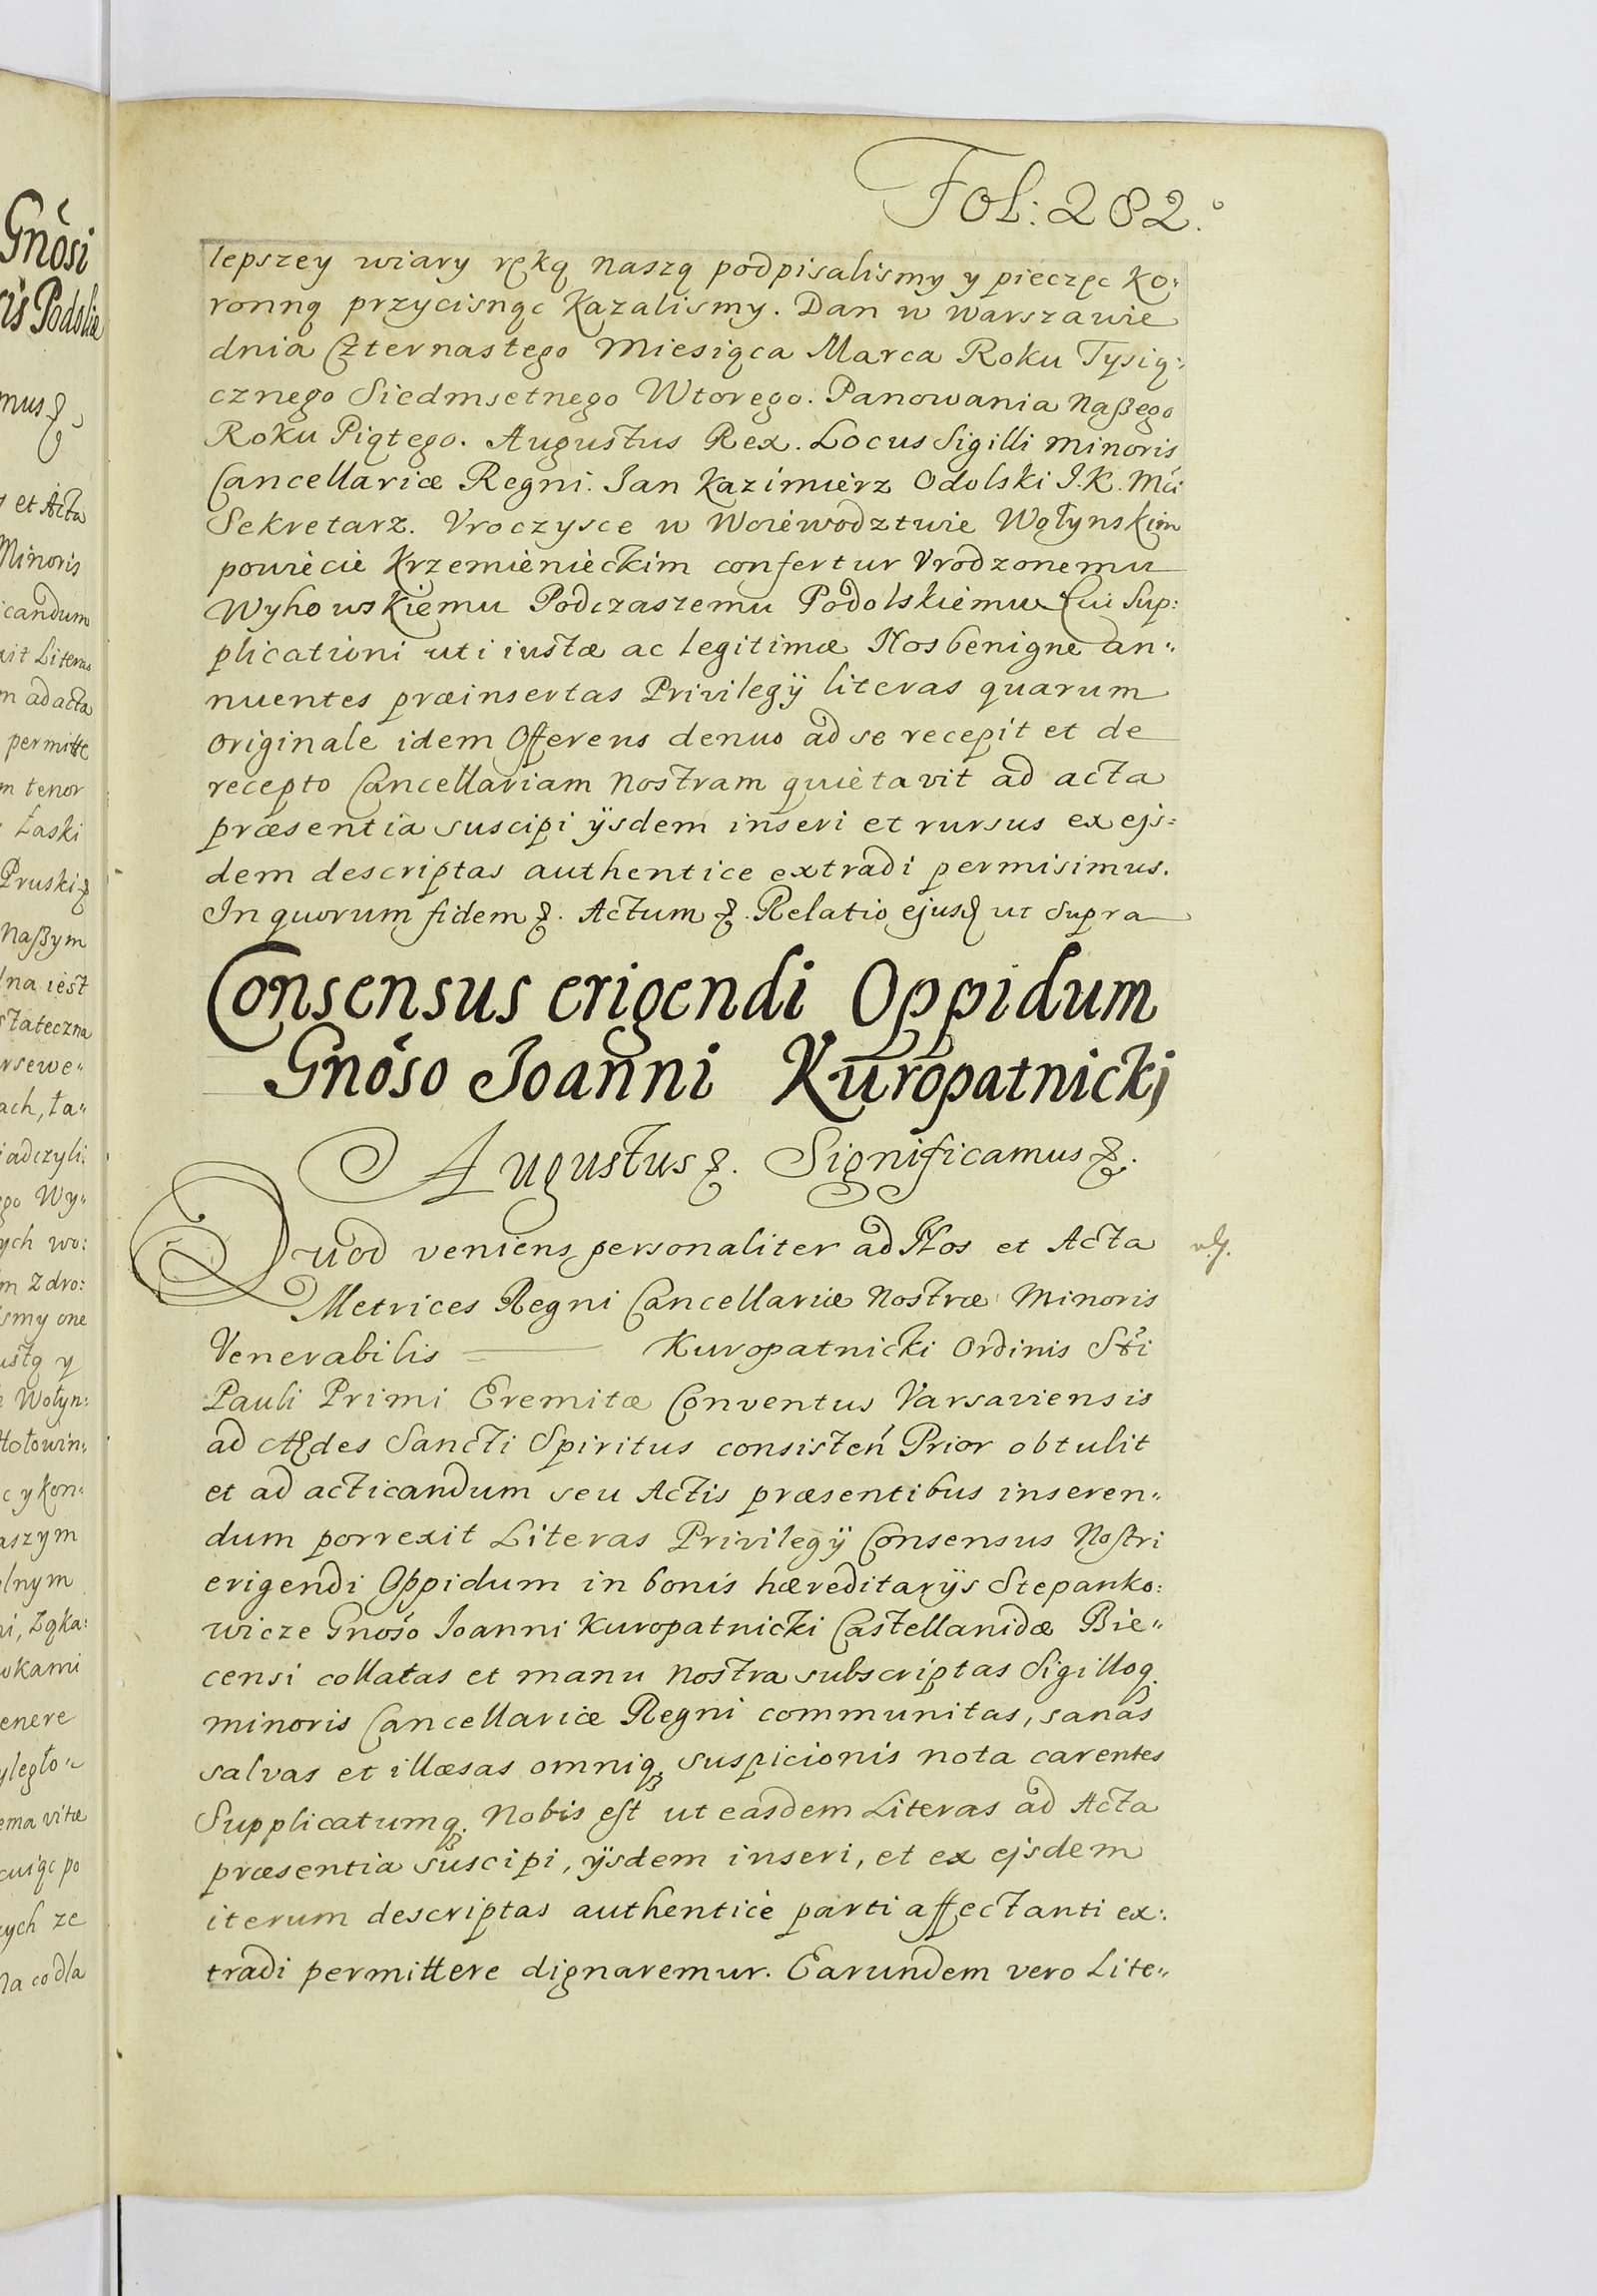 Gnósi
ris Podoliæ
mus
et Acta
Minoris
icandum
uit Literas
m ad acta
permitte
m tenor
Łaski
Pruski
Naßym
lna iest
stateczna
rsewe„
ach, ta„
iadczyli
ego Wy„
ych wo:
m Zdro:
smy one
ustą y
e Wołyn:
Hołowin:
c y kon:
aszym
lnym
ni, Łąka:
wkami
enere
yległo„
ema vitæ
cuiąc po
ych ze
na co dla
Fol: 282.
lepszey wiary ręką naszą podpisalismy y pieczęc Ko:
ronną przycisnąc Kazalismy. Dan w Warszawie
dnia Czternastego Miesiąca Marca Roku Tysią:
cznego Siedmsetnego Wtorego. Panowania Naßego
Roku Piątego. Augustus Rex. Locus Sigilli Minoris
Cancellariæ Regni. Jan Kazimierz Odolski J.K. Mći
Sekretarz. Vroczysce w Woiewodztwie Wołynskim
powiecie Krzemienieckim confertur Vrodzonemu
Wyhowskiemu Podczaszemu Podolskiemu Cui Sup:
plicationi uti iustæ ac legitimæ Nos benigne an„
nuentes præinsertas Privilegÿ literas quarum
originale idem Offerens denuo ad se recepit et de
recepto Cancellariam Nostram quietavit ad acta
præsentia suscipi ÿsdem inseri et rursus ex ejs:
dem descriptas authentice extradi permisimus.
In quorum fidem &. Actum &. Relatio ejusd ut supra
Consensus erigendi Oppidum
Gnóso Joanni Kuropatnickj
Augustus &. Significamus &.
Quod veniens personaliter ad Nos et Acta
Metrices Regni Cancellariæ Nostræ Minoris
Venerabilis — Kuropatnicki Ordinis Sti
Pauli Primi Eremitæ Conventus Varsaviensis
ad Ædes Sancti Spiritus consisteń Prior obtulit
et ad acticandum seu Actis præsentibus inseren„
dum porrexit Literas Privilegÿ Consensus Nostri
erigendi Oppidum in bonis hæreditarÿs Stepanko:
wicze Gnóso Joanni Kuropatnicki Castellanidæ Bie„
censi collatas et manu Nostra subscriptas Sigilloq
minoris Cancellariæ Regni communitas, sanas
salvas et illæsas omniq suspicionis nota carentes
Supplicatumq. Nobis est ut easdem Literas ad Acta
præsentia suscipi, ÿsdem inseri, et ex ejsdem
iterum descriptas authenticè parti affectanti ex:
tradi permittere dignaremur. Earundem vero Lite„